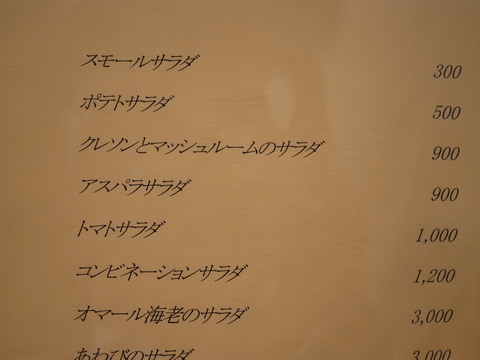 スモールサラダ 300
ポテトサラダ 500
クレソンとマッシュルームのサラダ 900
アスパラサラダ 900
トマトサラダ 1,000
コンビネーションサラダ 1,200
オマール海老のサラダ 3,000
あわびのサラダ 3,000